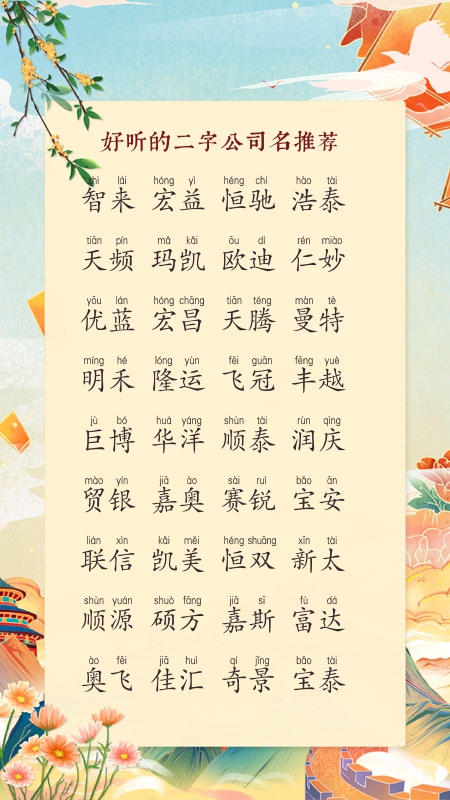 好听的二字公司名推荐
zhì lái hóng yì héng chí hào tài
智来 宏益 恒驰 浩泰
tiān pín mǎ kǎi ōu dí rén miào
天频 玛凯 欧迪 仁妙
yōu lán hóng chāng tiān téng màn tè
优蓝 宏昌 天腾 曼特
míng hé lóng yùn fēi guān fēng yuè
明禾 隆运 飞冠 丰越
jù bó huá yáng shùn tài rùn qìng
巨博 华洋 顺泰 润庆
mào yín jiā ào sài ruì bǎo ān
贸银 嘉奥 赛锐 宝安
lián xìn kǎi měi héng shuāng xīn tài
联信 凯美 恒双 新太
shùn yuán shuò fāng jiā sī fù dá
顺源 硕方 嘉斯 富达
ào fēi jiā huì qí jǐng bǎo tài
奥飞 佳汇 奇景 宝泰